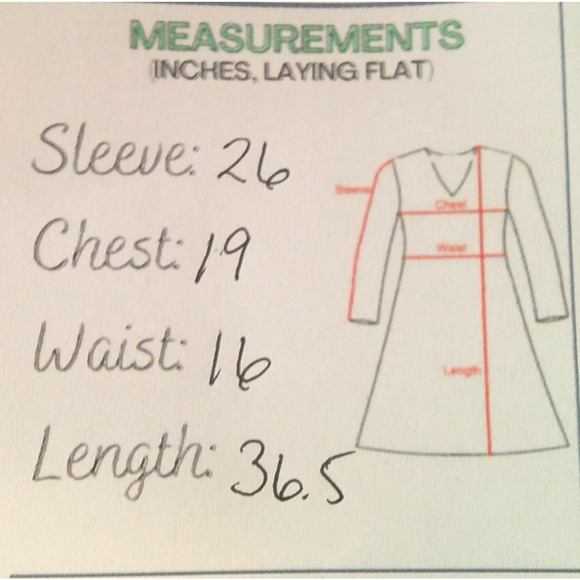 MEASUREMENTS
(INCHES, LAYING FLAT)
Sleeve: 26
Chest: 19
Waist: 16
Length: 36.5
Sleeve
Chest
Waist
Length